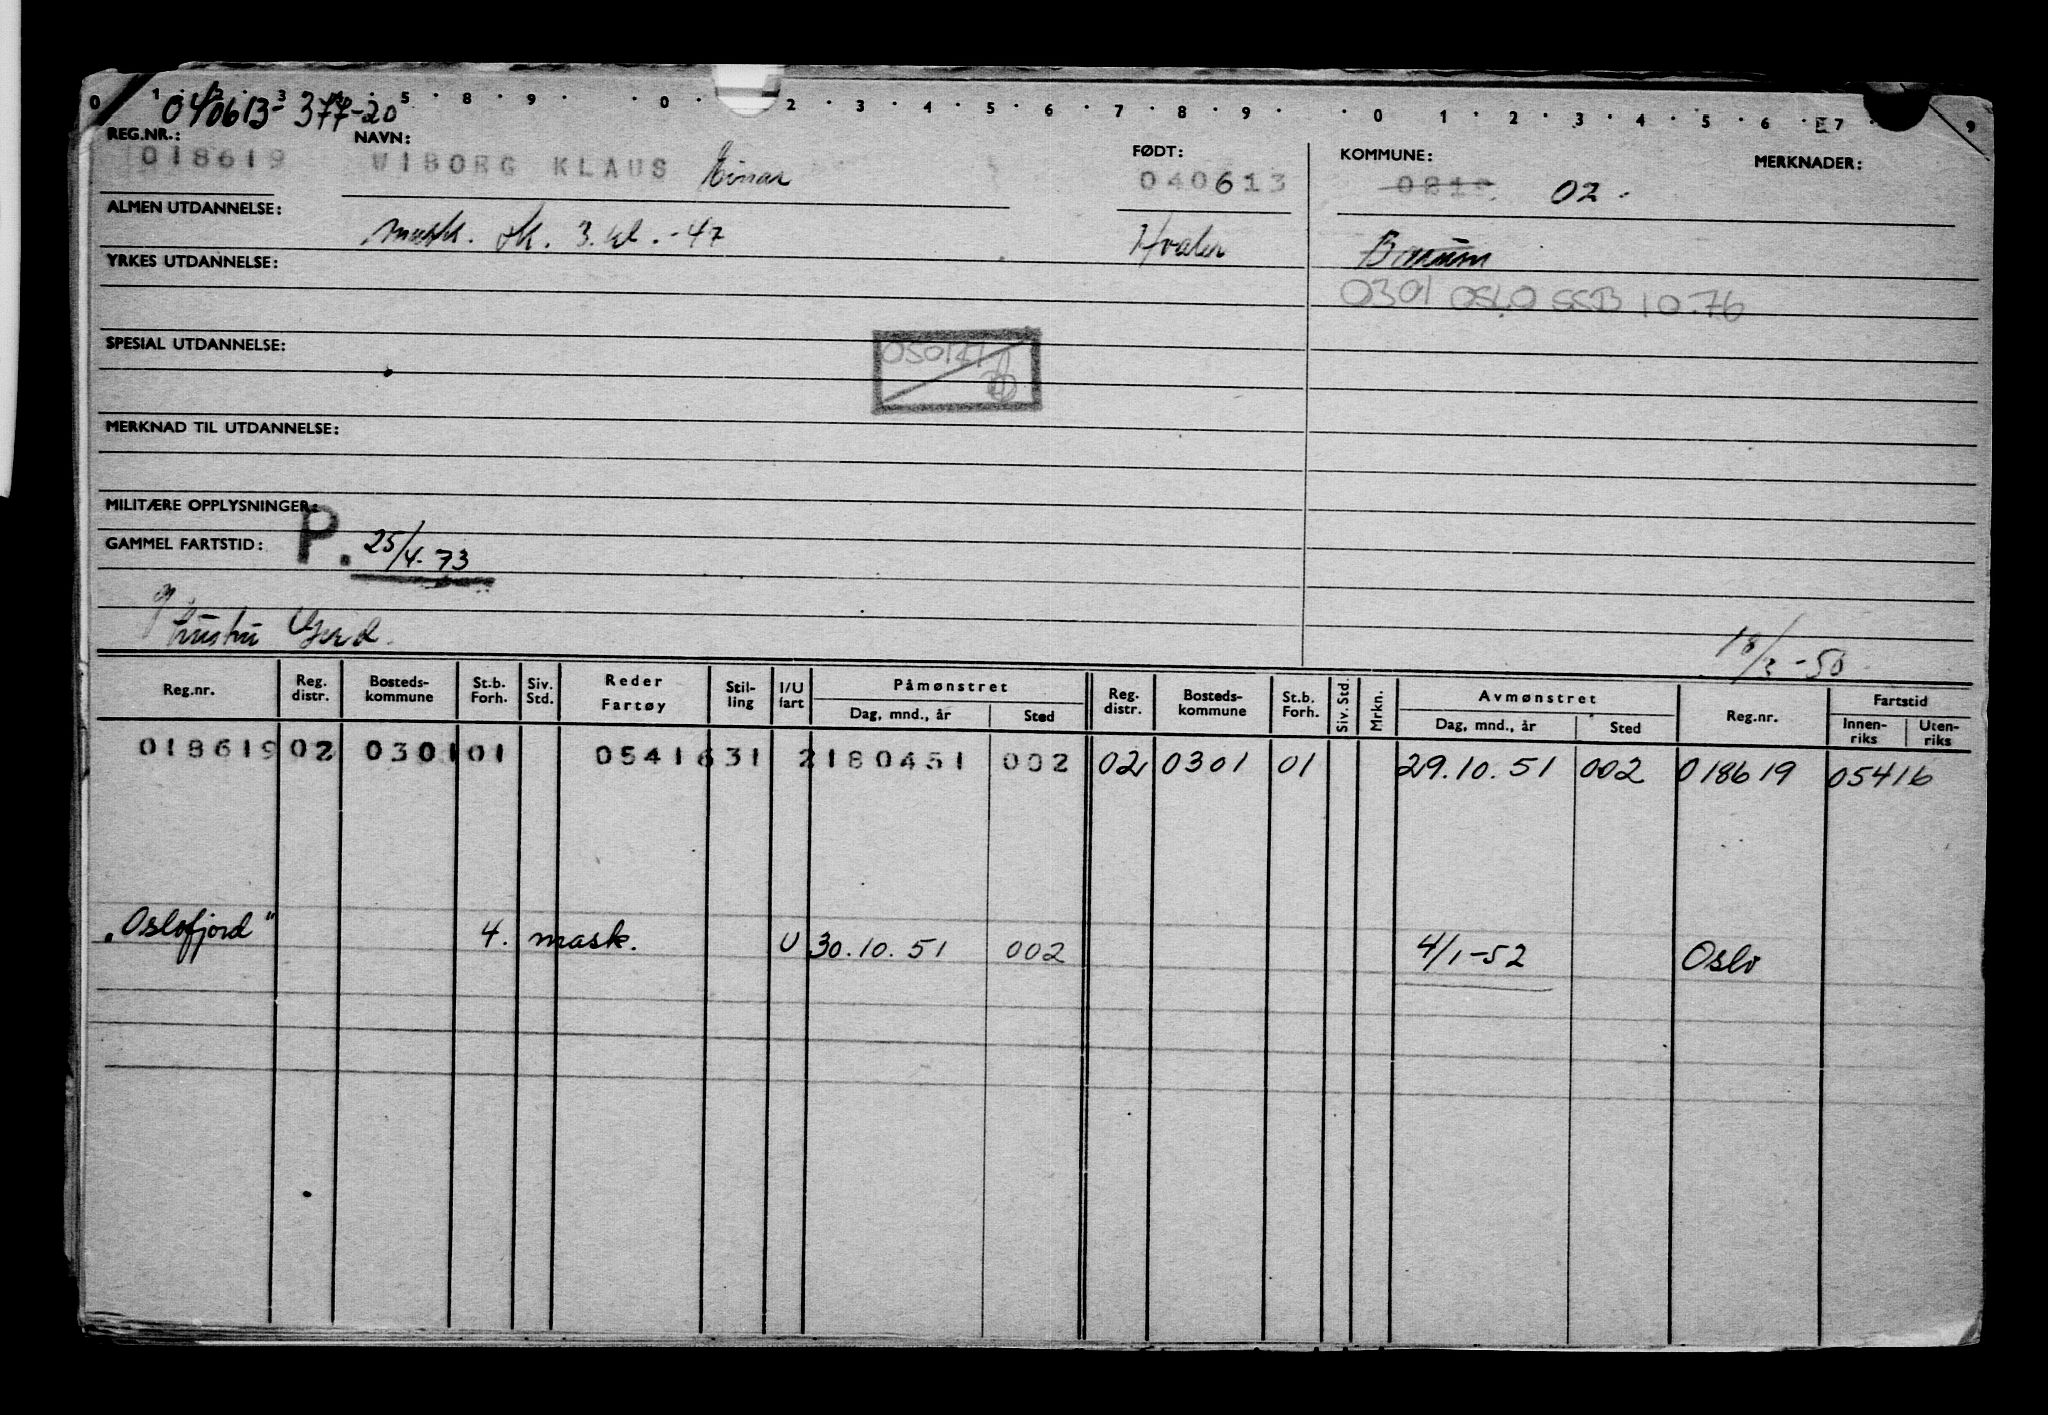 0 1 2 3 4 5 8 9 0 2 3 4 5 6 7 8 9 0 1 2 3 4 5 6 7 9
040613-377-20
REG.NR.: NAVN: FØDT: KOMMUNE: MERKNADER:
018619 WIBORG KLAUS Einar 040613 0219 02.
ALMEN UTDANNELSE: mask. sk. 3. kl. -47 Hvaler Bærum
YRKES UTDANNELSE:
0301 OSLO SSB 10.76
SPESIAL UTDANNELSE:
MERKNAD TIL UTDANNELSE:
MILITÆRE OPPLYSNINGER:
GAMMEL FARTSTID: P. 25/4-73
g hustru Gerd. 18/2-50
Reg.nr. Reg. distr. Bosteds-kommune St.b. Forh. Siv. Std. Reder Fartøy Stil-ling I/U fart Påmønstret Dag, mnd., år Sted Reg. distr. Bosteds-kommune St.b. Forh. Siv. Std. Mrkn. Avmønstret Dag, mnd., år Sted Reg.nr. Fartstid Innen-riks Uten-riks
018619 02 0301 01 05416 31 2 180451 002 02 0301 01 29.10.51 002 018619 05416
"Oslofjord" 4. mask. U 30.10.51 002 4/1-52 Oslo